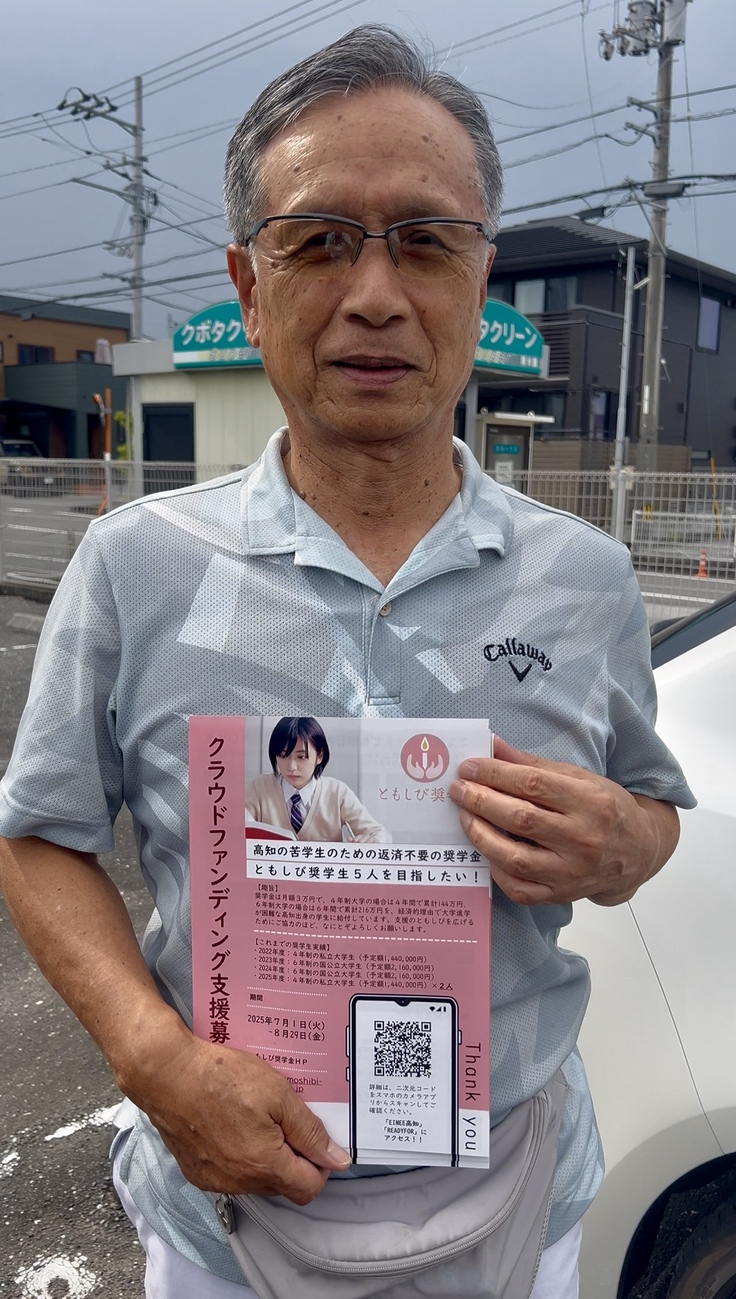 クボタク
タクリーン
Callaway
クラウドファンディング支援募
ともしび奨
高知の苦学生のための返済不要の奨学金
ともしび奨学生5人を目指したい！
【趣旨】
奨学金は月額3万円で、4年制大学の場合は4年間で累計144万円、
6年制大学の場合は6年間で累計216万円を、経済的理由で大学進学
が困難な高知出身の学生に給付しています。支援のともしびを広げる
ためにご協力のほど、なにとぞよろしくお願いします。
【これまでの奨学生実績】
・2022年度：4年制の私立大学生（予定額1,440,000円）
・2023年度：6年制の国公立大学生（予定額2,160,000円）
・2024年度：6年制の国公立大学生（予定額2,160,000円）
・2025年度：4年制の私立大学生（予定額1,440,000円）×2人
期間
2025年7月1日(火)
-8月29日(金)
もしび奨学金HP
moshibi-
.jp
詳細は、二次元コード
をスマホのカメラアプ
リからスキャンしてご
確認ください。
「EINEE高知」
「READYFOR」に
アクセス！！
Thank you